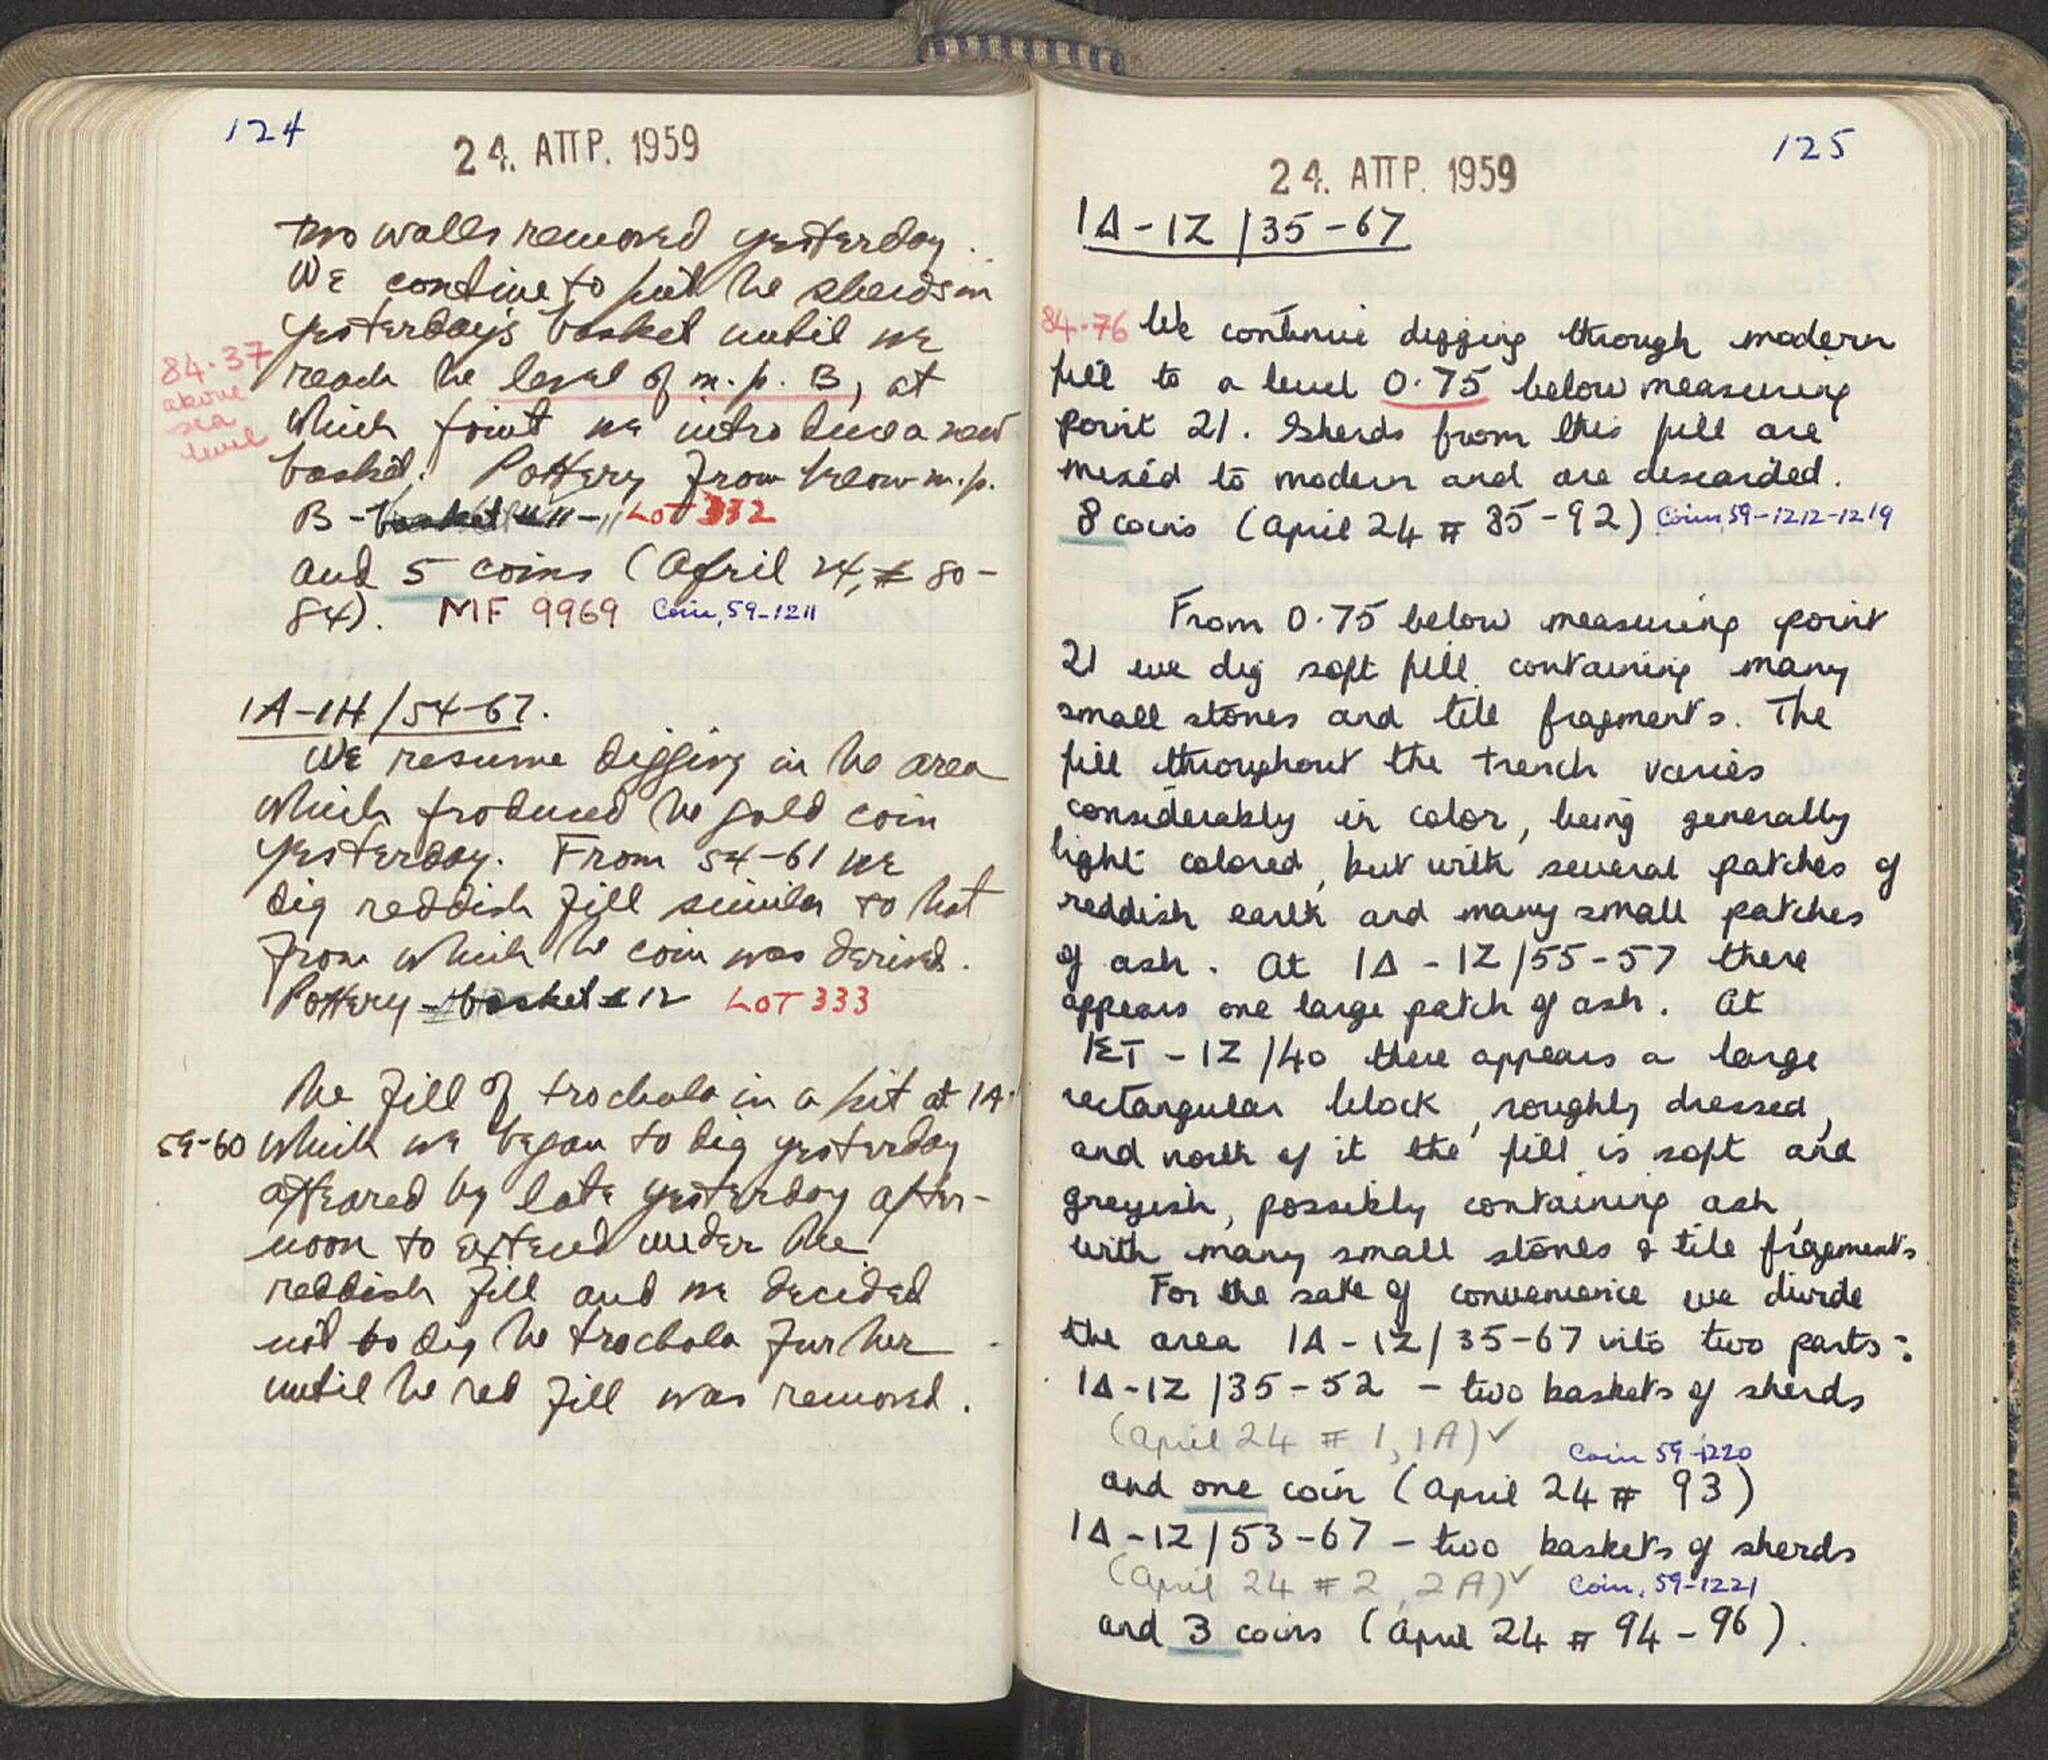 124
24. ΑΠΡ. 1959
two walls removed yesterday.
We continue to put the sherds in
yesterday's basket until we
84.37
above
sea
level
reach the level of m.p. B, at
which point we introduce a new
basket. Pottery from below m.p.
B - basket #11 - LOT 332
and 5 coins (April 24, # 80-
84). MF 9969 Coin, 59-1211
1A-1H/54-67.
We resume digging in the area
which produced the gold coin
yesterday. From 54-61 we
dig reddish fill similar to that
from which the coin was derived.
Pottery - basket #12 LOT 333
The fill of trochala in a pit at 1A·
59-60 which we began to dig yesterday
appeared by late yesterday after-
noon to extend under the
reddish fill and we decided
not to dig the trochala further
until the red fill was removed.
125
24. ΑΠΡ. 1959
1Δ-1Z/35-67
84.76 We continue digging through modern
fill to a level 0.75 below measuring
point 21. Sherds from this fill are
mixed to modern and are discarded.
8 coins (April 24 # 85-92) Coins, 59-1212-1219
From 0.75 below measuring point
21 we dig soft fill containing many
small stones and tile fragments. The
fill throughout the trench varies
considerably in color, being generally
light colored, but with several patches of
reddish earth and many small patches
of ash. At 1Δ-1Z/55-57 there
appears one large patch of ash. At
1ΣΤ-1Z/40 there appears a large
rectangular block, roughly dressed,
and north of it the fill is soft and
greyish, possibly containing ash,
with many small stones & tile fragements.
For the sake of convenience we divide
the area 1Δ-1Z/35-67 into two parts:
1Δ-1Z/35-52 - two baskets of sherds
(April 24 # 1, 1A) ✓
Coin 59-1220
and one coin (April 24 # 93)
1Δ-1Z/53-67 - two baskets of sherds
(April 24 # 2, 2A) ✓ Coin, 59-1221
and 3 coins (April 24 # 94-96).